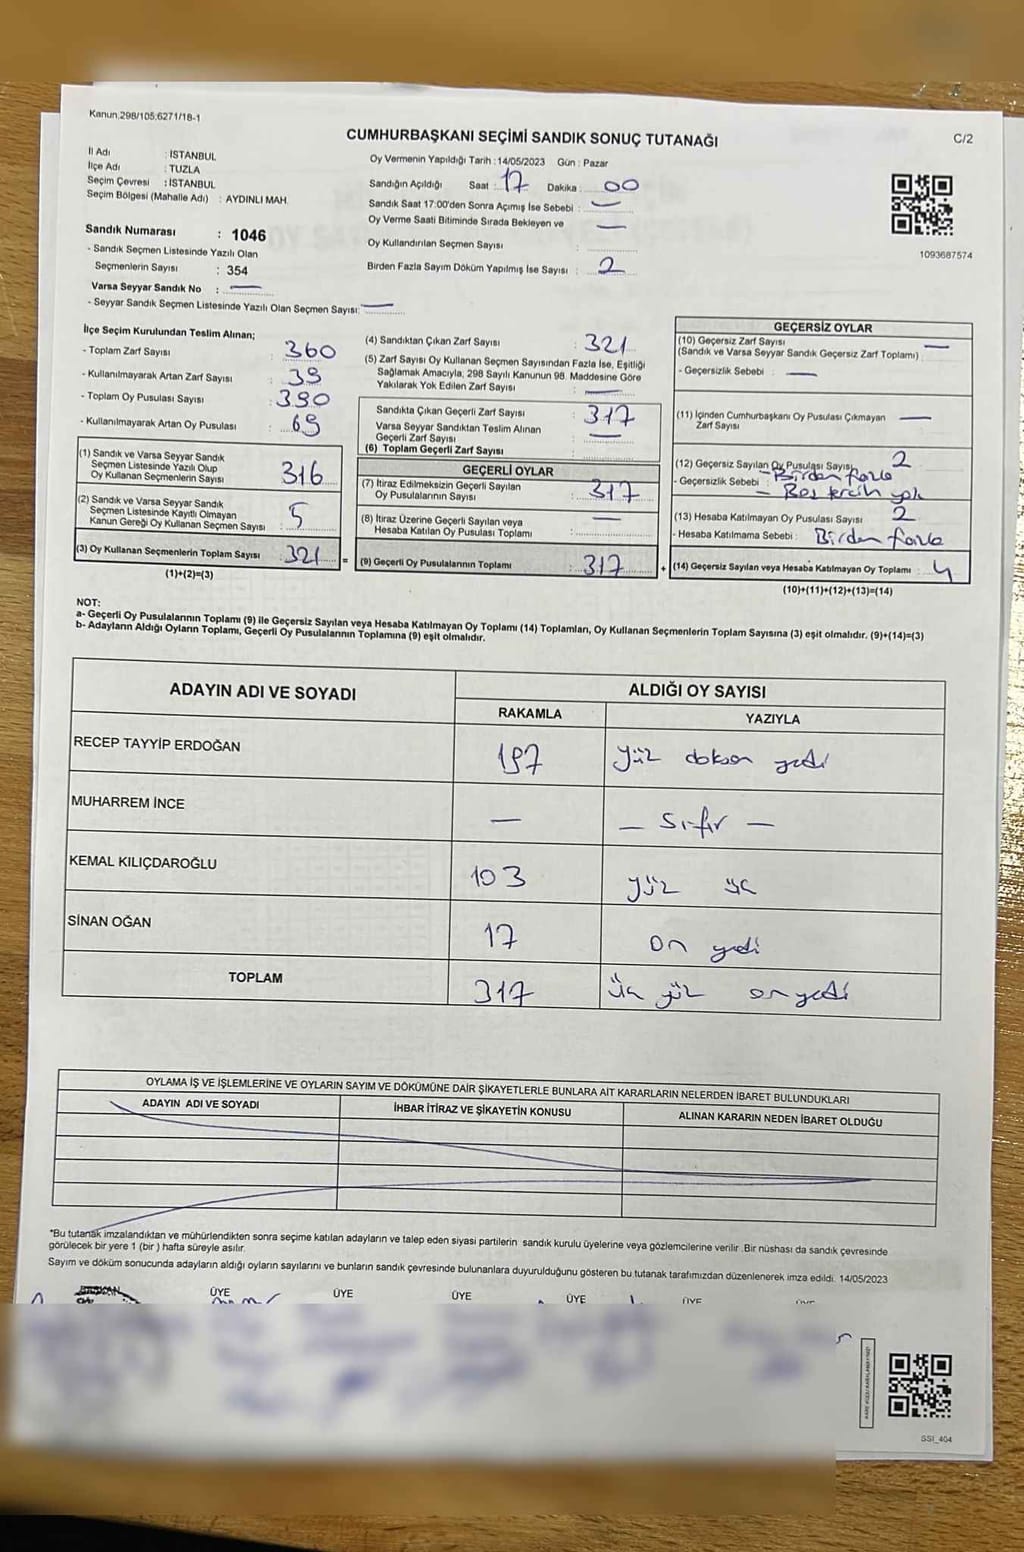 Kanun.298/105.6271/18-1
CUMHURBAŞKANI SEÇİMİ SANDIK SONUÇ TUTANAĞI
C/2
İl Adı : İSTANBUL
İlçe Adı : TUZLA
Seçim Çevresi : İSTANBUL
Seçim Bölgesi (Mahalle Adı) : AYDINLI MAH.
Sandık Numarası : 1046
- Sandık Seçmen Listesinde Yazılı Olan
Seçmenlerin Sayısı : 354
Varsa Seyyar Sandık No : —
- Seyyar Sandık Seçmen Listesinde Yazılı Olan Seçmen Sayısı: —
Oy Vermenin Yapıldığı Tarih : 14/05/2023 Gün : Pazar
Sandığın Açıldığı Saat : 17 Dakika : 00
Sandık Saat 17:00'den Sonra Açımış İse Sebebi : —
Oy Verme Saati Bitiminde Sırada Bekleyen ve —
Oy Kullandırılan Seçmen Sayısı :
Birden Fazla Sayım Döküm Yapılmış İse Sayısı : 2
1093687574
İlçe Seçim Kurulundan Teslim Alınan;
- Toplam Zarf Sayısı : 360
- Kullanılmayarak Artan Zarf Sayısı : 39
- Toplam Oy Pusulası Sayısı : 390
- Kullanılmayarak Artan Oy Pusulası : 69
(1) Sandık ve Varsa Seyyar Sandık
Seçmen Listesinde Yazılı Olup
Oy Kullanan Seçmenlerin Sayısı : 316
(2) Sandık ve Varsa Seyyar Sandık
Seçmen Listesinde Kayıtlı Olmayan
Kanun Gereği Oy Kullanan Seçmen Sayısı : 5
(3) Oy Kullanan Seçmenlerin Toplam Sayısı : 321 =
(1)+(2)=(3)
(4) Sandıktan Çıkan Zarf Sayısı : 321
(5) Zarf Sayısı Oy Kullanan Seçmen Sayısından Fazla İse, Eşitliği
Sağlamak Amacıyla, 298 Sayılı Kanunun 98. Maddesine Göre
Yakılarak Yok Edilen Zarf Sayısı : —
Sandıkta Çıkan Geçerli Zarf Sayısı : 317
Varsa Seyyar Sandıktan Teslim Alınan
Geçerli Zarf Sayısı : —
(6) Toplam Geçerli Zarf Sayısı :
GEÇERLİ OYLAR
(7) İtiraz Edilmeksizin Geçerli Sayılan
Oy Pusulalarının Sayısı : 317
(8) İtiraz Üzerine Geçerli Sayılan veya
Hesaba Katılan Oy Pusulası Toplamı : —
(9) Geçerli Oy Pusulalarının Toplamı : 317 +
GEÇERSİZ OYLAR
(10) Geçersiz Zarf Sayısı —
(Sandık ve Varsa Seyyar Sandık Geçersiz Zarf Toplamı) :
- Geçersizlik Sebebi : —
(11) İçinden Cumhurbaşkanı Oy Pusulası Çıkmayan —
Zarf Sayısı
(12) Geçersiz Sayılan Oy Pusulası Sayısı 2
- Geçersizlik Sebebi : - Birden fazla
- Boş tercih yok
(13) Hesaba Katılmayan Oy Pusulası Sayısı : 2
- Hesaba Katılmama Sebebi : Birden fazla
(14) Geçersiz Sayılan veya Hesaba Katılmayan Oy Toplamı : 4
(10)+(11)+(12)+(13)=(14)
NOT:
a- Geçerli Oy Pusulalarının Toplamı (9) ile Geçersiz Sayılan veya Hesaba Katılmayan Oy Toplamı (14) Toplamları, Oy Kullanan Seçmenlerin Toplam Sayısına (3) eşit olmalıdır. (9)+(14)=(3)
b- Adayların Aldığı Oyların Toplamı, Geçerli Oy Pusulalarının Toplamına (9) eşit olmalıdır.
ADAYIN ADI VE SOYADI
ALDIĞI OY SAYISI
RAKAMLA YAZIYLA
RECEP TAYYİP ERDOĞAN 197 Yüz doksan yedi
MUHARREM İNCE — — Sıfır —
KEMAL KILIÇDAROĞLU 103 yüz üç
SİNAN OĞAN 17 on yedi
TOPLAM 317 üç yüz onyedi
OYLAMA İŞ VE İŞLEMLERİNE VE OYLARIN SAYIM VE DÖKÜMÜNE DAİR ŞİKAYETLERLE BUNLARA AİT KARARLARIN NELERDEN İBARET BULUNDUKLARI
ADAYIN ADI VE SOYADI İHBAR İTİRAZ VE ŞİKAYETİN KONUSU ALINAN KARARIN NEDEN İBARET OLDUĞU
*Bu tutanak imzalandıktan ve mühürlendikten sonra seçime katılan adayların ve talep eden siyasi partilerin sandık kurulu üyelerine veya gözlemcilerine verilir .Bir nüshası da sandık çevresinde
görülecek bir yere 1 (bir ) hafta süreyle asılır.
Sayım ve döküm sonucunda adayların aldığı oyların sayılarını ve bunların sandık çevresinde bulunanlara duyurulduğunu gösteren bu tutanak tarafımızdan düzenlenerek imza edildi. 14/05/2023
ÜYE ÜYE ÜYE ÜYE ÜYE
SSI_404